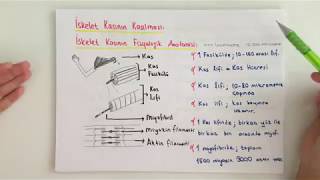 İskelet Kasının Kasılması
İskelet Kasının Fizyolojik Anatomisi
Kas
Kas Fasikülü
Kas Lifi
Miyofibril
Miyozin filamenti
Aktin filamenti
1 Fasikülde; 10-100 arası lif.
Kas Lifi = Kas Hücresi
Kas lifi; 10-80 mikrometre çapında
Kas lifi; kas boyunca uzanır.
1 Kas lifinde; birkaç yüz ile birkaç bin arasında miyof.
1 miyofibrilde; toplam
1500 miyozin 3000 aktin